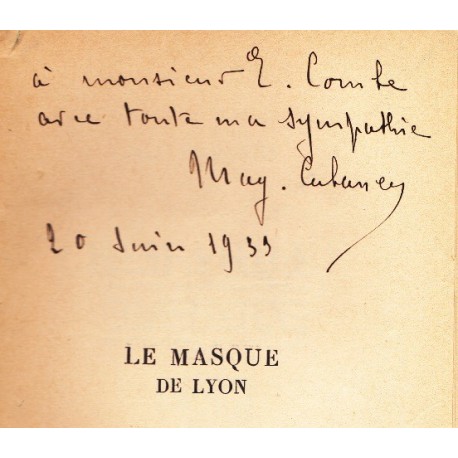 à monsieur E. Combe
avec toute ma sympathie
May.
20 Juin 1933
LE MASQUE
DE LYON